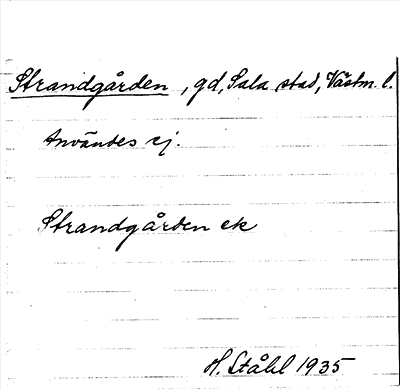 Strandgården, gd, Sala stad, Västm. l.
Användes ej.
Strandgården ek
H. Ståhl 1935